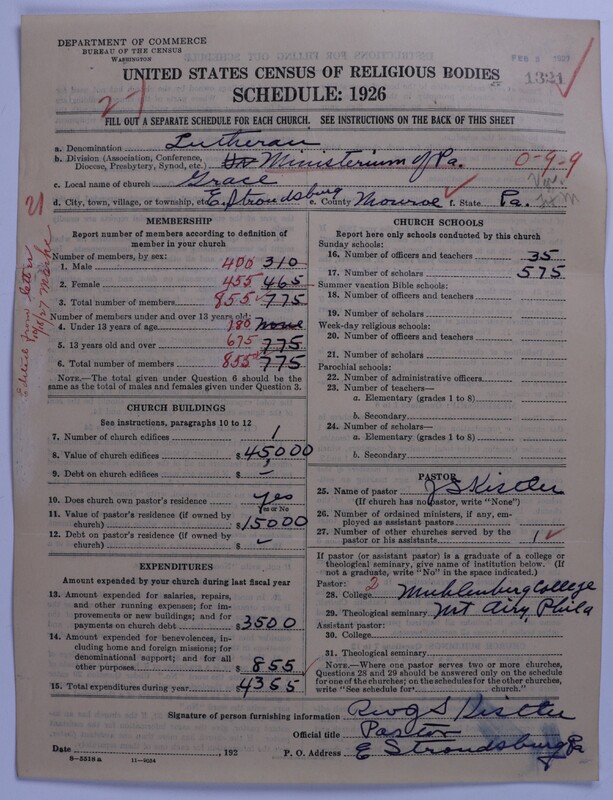 DEPARTMENT OF COMMERCE
BUREAU OF THE CENSUS
WASHINGTON
FEB 8 1927
1321
UNITED STATES CENSUS OF RELIGIOUS BODIES
SCHEDULE: 1926
2-1
FILL OUT A SEPARATE SCHEDULE FOR EACH CHURCH. SEE INSTRUCTIONS ON THE BACK OF THIS SHEET
a. Denomination Lutheran
b. Division (Association, Conference, Diocese, Presbytery, Synod, etc.) Ministerium of Pa. 0-9-9
c. Local name of church Grace
d. City, town, village, or township, etc. E. Stroudsburg e. County Monroe f. State Pa.
MEMBERSHIP
Report number of members according to definition of
member in your church
Number of members, by sex:
1. Male 400 310
2. Female 455 465
3. Total number of members 855 775
Number of members under and over 13 years old:
4. Under 13 years of age 180 None
5. 13 years old and over 675 775
6. Total number of members 855 775
NOTE.—The total given under Question 6 should be
same as the total of males and females given under Question 3.
CHURCH BUILDINGS
See instructions, paragraphs 10 to 12
7. Number of church edifices 1
8. Value of church edifices $ 45,000
9. Debt on church edifices $ –
10. Does church own pastor's residence Yes
Yes or No
11. Value of pastor's residence (if owned by
church) $ 15000
12. Debt on pastor's residence (if owned by
church) $ –
EXPENDITURES
Amount expended by your church during last fiscal year
13. Amount expended for salaries, repairs,
and other running expenses; for im-
provements or new buildings; and for
payments on church debt $ 3500
14. Amount expended for benevolences, in-
cluding home and foreign missions; for
denominational support; and for all
other purposes $ 855
15. Total expenditures during year $ 4355
CHURCH SCHOOLS
Report here only schools conducted by this church
Sunday schools:
16. Number of officers and teachers 35
17. Number of scholars 575
Summer vacation Bible schools:
18. Number of officers and teachers
19. Number of scholars
Week-day religious schools:
20. Number of officers and teachers
21. Number of scholars
Parochial schools:
22. Number of administrative officers
23. Number of teachers—
a. Elementary (grades 1 to 8)
b. Secondary
24. Number of scholars—
a. Elementary (grades 1 to 8)
b. Secondary
PASTOR
25. Name of pastor J S Kistler
(If church has no pastor, write "None")
26. Number of ordained ministers, if any, em-
ployed as assistant pastors
27. Number of other churches served by the
pastor or his assistants 1
If pastor (or assistant pastor) is a graduate of a college or
theological seminary, give name of institution below. (If
not a graduate, write "No" in the space indicated.)
Pastor: 2
28. College Muhlenburg College
29. Theological seminary Mt Airy, Phila
Assistant pastor:
30. College
31. Theological seminary
NOTE.—Where one pastor serves two or more churches,
Questions 28 and 29 should be answered only on the schedule
for one of the churches; on the schedules for the other churches,
write "See schedule for church."
Signature of person furnishing information Rev J S Kistler
Official title Pastor
Date , 192 P. O. Address E Stroudsburg Pa
8—5518 a 11—9034